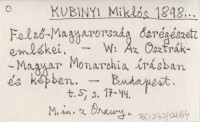 O
KUBINYI Miklós 1898...
Felső-Magyarország ősrégészeti
emlékei. - W: Az Osztrák-
-Magyar Monarchia írásban
és képben. - Budapest.
t.5, s. 17-44.
M.in. z Orawy.